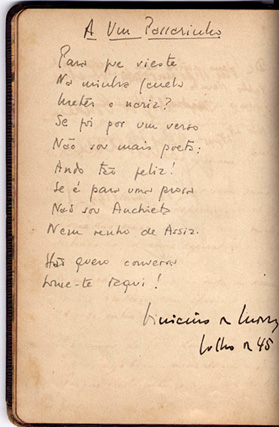 A Um Passarinho
Para que vieste
Na minha janela
Meter o nariz?
Se foi por um verso
Não sou mais poeta:
Ando tão feliz!
Se é para uma prosa
Não sou Anchieta
Nem venho de Assis.
Não quero conversa
Some-te daqui!
Vinicius de Moraes
Julho de 45